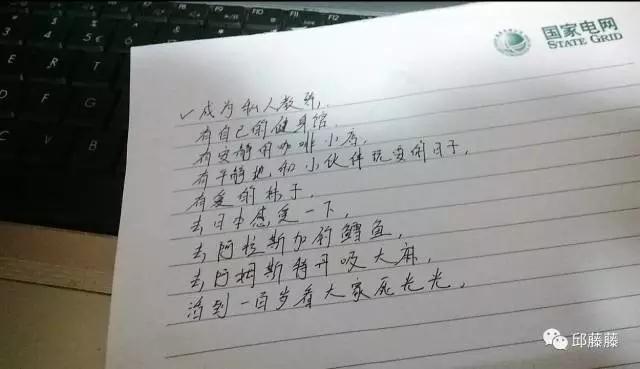 国家电网
STATE GRID
✓成为私人教练，
有自己的健身馆，
有安静的咖啡小店，
有平静地和小伙伴玩耍的日子，
有爱的妹子，
去日本感受一下，
去阿拉斯加钓鳕鱼，
去阿姆斯特丹吸大麻，
活到一百岁看大家死光光，
邱藤藤